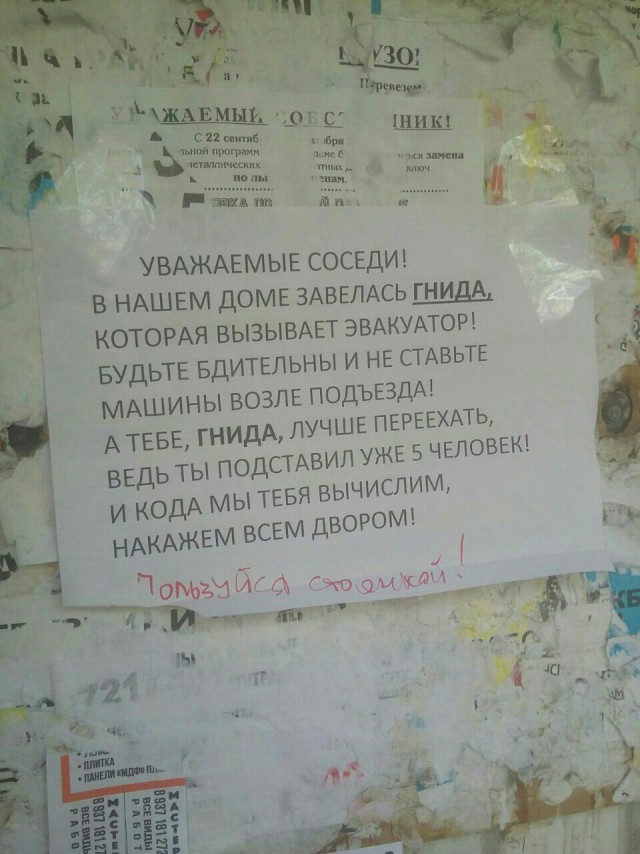 УЗО!
Перевезем
УВАЖАЕМЫЙ СОБСТ НИК!
С 22 сентяб
замена
ключ
УВАЖАЕМЫЕ СОСЕДИ!
В НАШЕМ ДОМЕ ЗАВЕЛАСЬ ГНИДА,
КОТОРАЯ ВЫЗЫВАЕТ ЭВАКУАТОР!
БУДЬТЕ БДИТЕЛЬНЫ И НЕ СТАВЬТЕ
МАШИНЫ ВОЗЛЕ ПОДЪЕЗДА!
А ТЕБЕ, ГНИДА, ЛУЧШЕ ПЕРЕЕХАТЬ,
ВЕДЬ ТЫ ПОДСТАВИЛ УЖЕ 5 ЧЕЛОВЕК!
И КОДА МЫ ТЕБЯ ВЫЧИСЛИМ,
НАКАЖЕМ ВСЕМ ДВОРОМ!
Пользуйся стоянкой!
721
• ПЛИТКА
• ПАНЕЛИ «МДФ»
МАСТЕР
ВСЕ ВИДЫ
РАБОТ
8 937 181 272